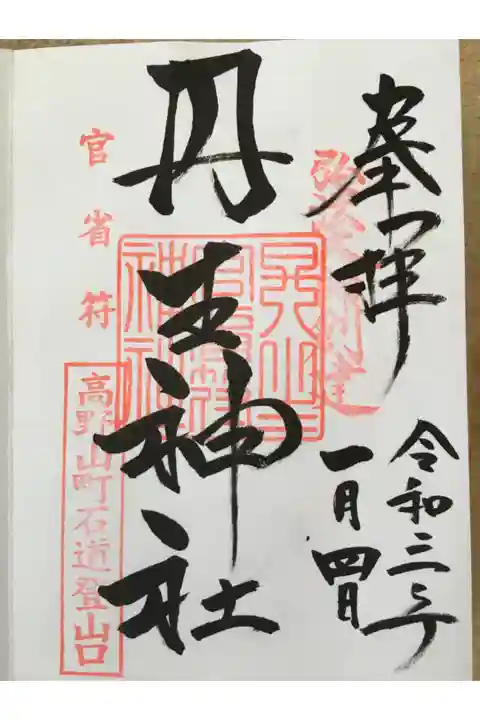 奉拝
弘法大師創建
令和三年
一月四日
丹生神社
官省符
高野山町石道登山口